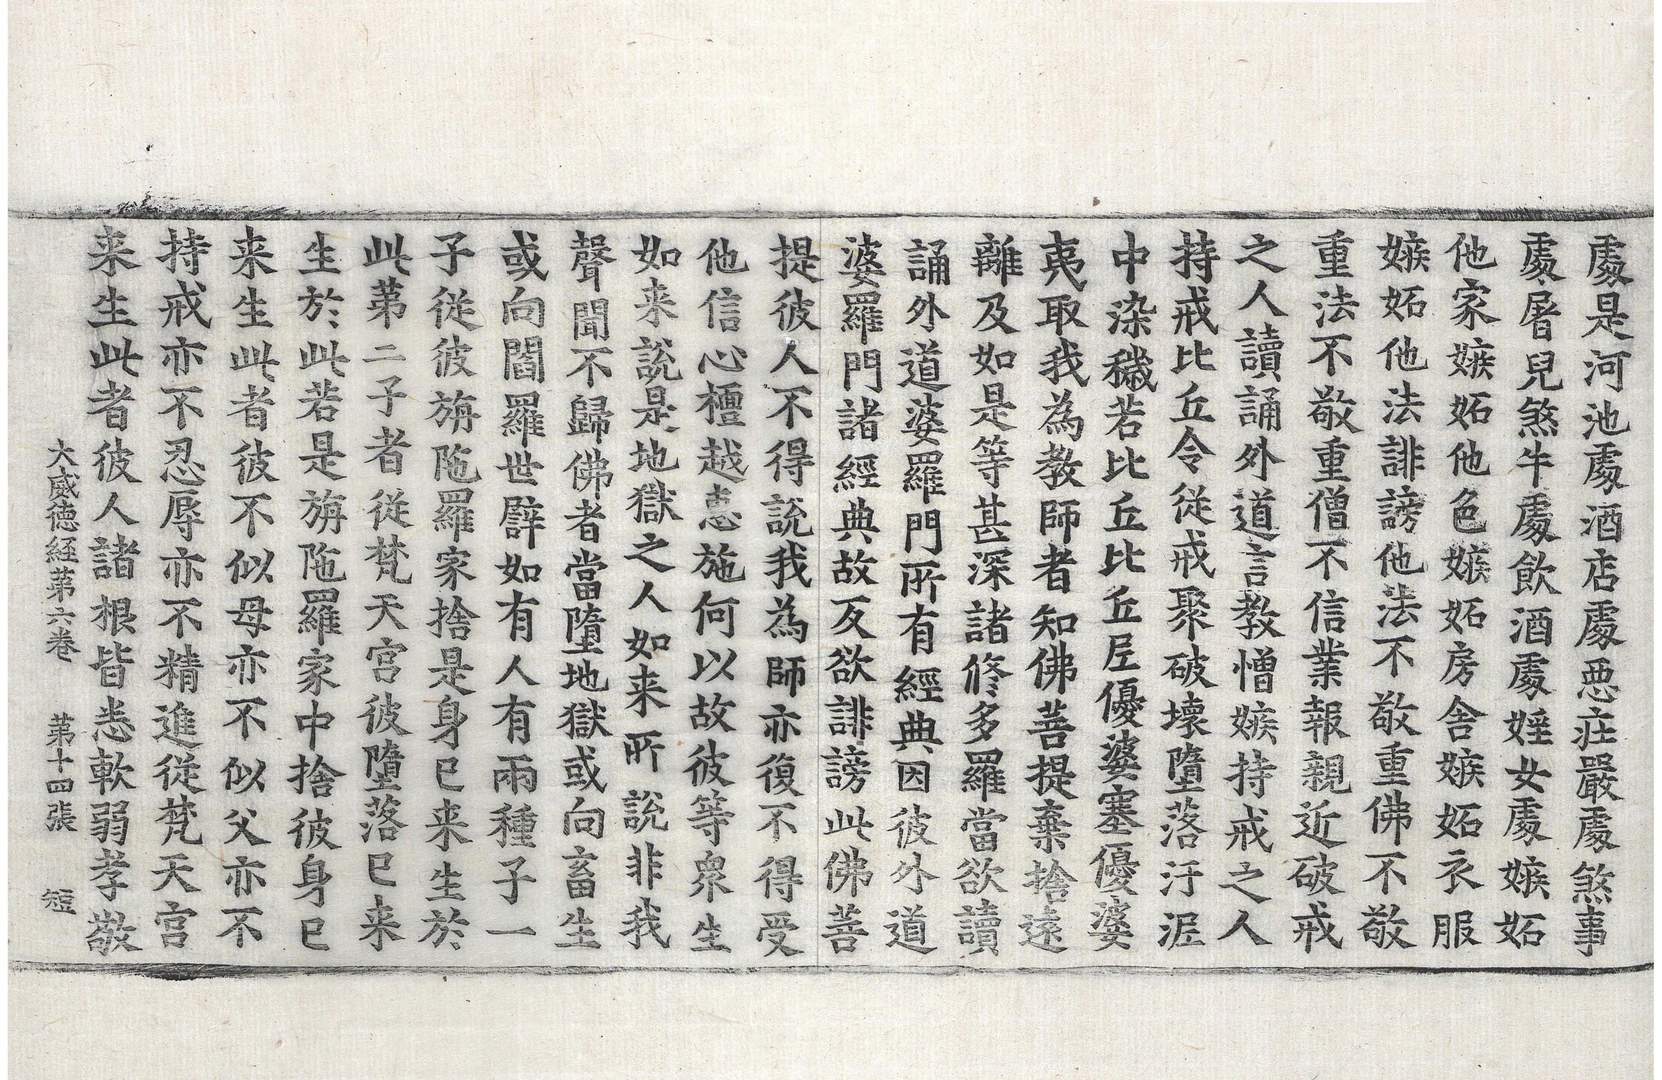 處是河池處酒店處惡庄嚴處煞事
處屠兒煞牛處飲酒處婬女處嫉妬
他家嫉妬他色嫉妬房舍嫉妬衣服
嫉妬他法誹謗他法不敬重佛不敬
重法不敬重僧不信業報親近破戒
之人讀誦外道言教憎嫉持戒之人
持戒比丘令從戒聚破壞墮落汙泥
中染穢若比丘比丘尼優婆塞優婆
夷取我為教師者知佛菩提棄捨遠
離及如是等甚深諸修多羅當欲讀
誦外道婆羅門所有經典因彼外道
婆羅門諸經典故反欲誹謗此佛菩
提彼人不得說我為師亦復不得受
他信心檀越惠施何以故彼等衆生
如来說是地獄之人如来所說非我
聲聞不歸佛者當墮地獄或向畜生
或向閻羅世辟如有人有兩種子一
子從彼旃陁羅家捨是身已来生於
此第二子者從梵天宮彼墮落已来
生於此若是旃陁羅家中捨彼身已
来生此者彼不似母亦不似父亦不
持戒亦不忍辱亦不精進從梵天宮
来生此者彼人諸根皆悉軟弱孝敬
大威德経第六卷 第十四張 短